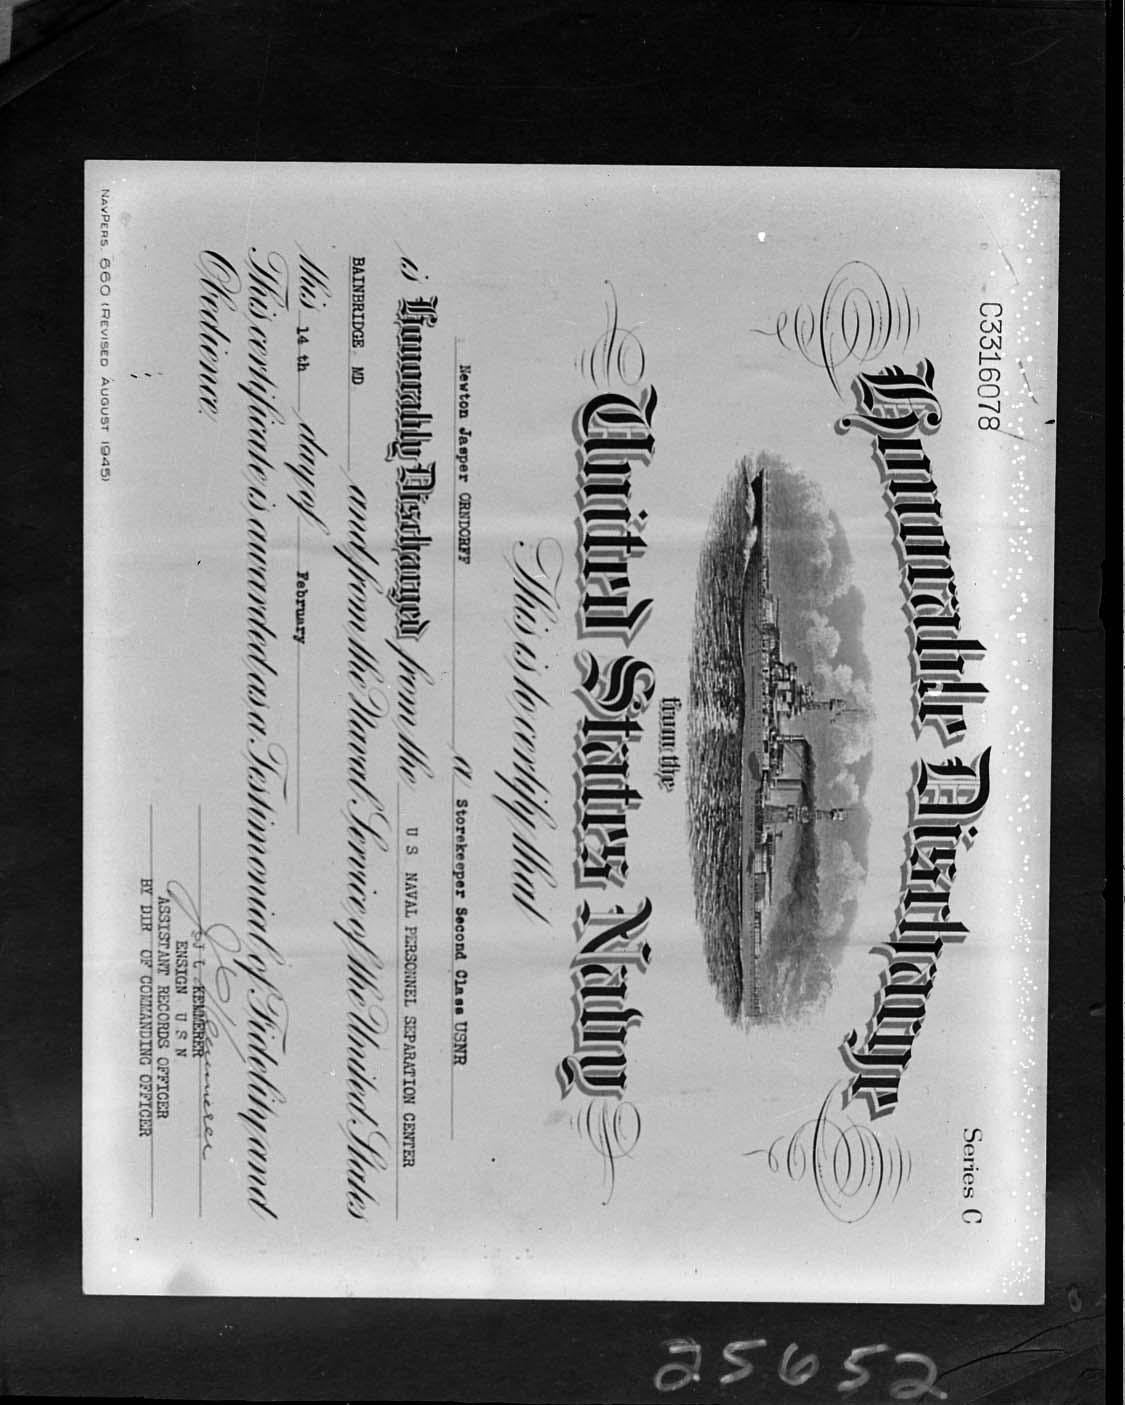 C3316078
Series C
Honorable Discharge
from the
United States Navy
This is to certify that
Newton Jasper ORNDORFF a Storekeeper Second Class USNR
is Honorably Discharged from the U S NAVAL PERSONNEL SEPARATION CENTER
BAINBRIDGE MD. and from the Naval Service of the United States
this 14 th day of February
This certificate is awarded as a Testimonial of Fidelity and
Obedience.
J. C. Kemmerer
KEMMERER
ENSIGN U S N
ASSISTANT RECORDS OFFICER
BY DIR OF COMMANDING OFFICER
NAVPERS. 660 (REVISED AUGUST 1945)
25652